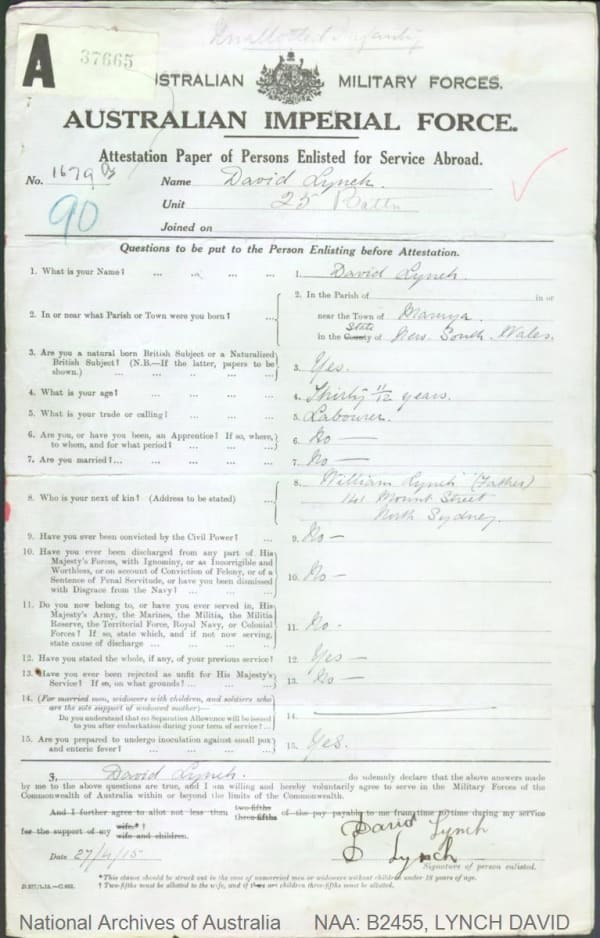 A
37665
AUSTRALIAN MILITARY FORCES.
AUSTRALIAN IMPERIAL FORCE.
Attestation Paper of Persons Enlisted for Service Abroad.
No. 1679
Name David Lynch.
90
Unit 25 Battn
Joined on
Questions to be put to the Person Enlisting before Attestation.
1. What is your Name? ... ... ... ... 1. David Lynch.
2. In or near what Parish or Town were you born? ... 2. In the Parish of in or
near the Town of Moruya
in the County State of New South Wales.
3. Are you a natural born British Subject or a Naturalized
British Subject? (N.B.—If the latter, papers to be
shown.) ... ... ... ... 3. Yes.
4. What is your age? ... ... ... ... 4. Thirty 11/12 years.
5. What is your trade or calling? ... ... ... 5. Labourer.
6. Are you, or have you been, an Apprentice? If so, where,
to whom, and for what period? ... ... ... 6. No —
7. Are you married?... ... ... ... 7. No —
8. Who is your next of kin? (Address to be stated) ... 8. William Lynch (Father)
141 Mount Street
North Sydney.
9. Have you ever been convicted by the Civil Power? ... 9. No —
10. Have you ever been discharged from any part of His
Majesty's Forces, with Ignominy, or as Incorrigible and
Worthless, or on account of Conviction of Felony, or of a
Sentence of Penal Servitude, or have you been dismissed
with Disgrace from the Navy? ... ... ... 10. No —
11. Do you now belong to, or have you ever served in, His
Majesty's Army, the Marines, the Militia, the Militia
Reserve, the Territorial Force, Royal Navy, or Colonial
Forces? If so, state which, and if not now serving,
state cause of discharge ... ... ... 11. No -
12. Have you stated the whole, if any, of your previous service? 12. Yes —
13. Have you ever been rejected as unfit for His Majesty's
Service? If so, on what grounds? ... ... ... 13. No —
14. (For married men, widowers with children, and soldiers who
are the sole support of widowed mother)—
Do you understand that no Separation Allowance will be issued
to you after embarkation during your term of service? ... 14.
15. Are you prepared to undergo inoculation against small pox
and enteric fever? ... ... ... ... 15. Yes.
I, David Lynch. do solemnly declare that the above answers made
by me to the above questions are true, and I am willing and hereby voluntarily agree to serve in the Military Forces of the
Commonwealth of Australia within or beyond the limits of the Commonwealth.
And I further agree to allot not less than two-fifths three-fifths of the pay payable to me from time to time during my service
for the support of my wife.* † wife and children.
David Lynch
D Lynch
Date 27/4/15
Signature of person enlisted.
*This clause should be struck out in the case of unmarried men or widowers without children under 18 years of age.
† Two-fifths must be allotted to the wife, and if there are children three-fifths must be allotted.
National Archives of Australia NAA: B2455, LYNCH DAVID